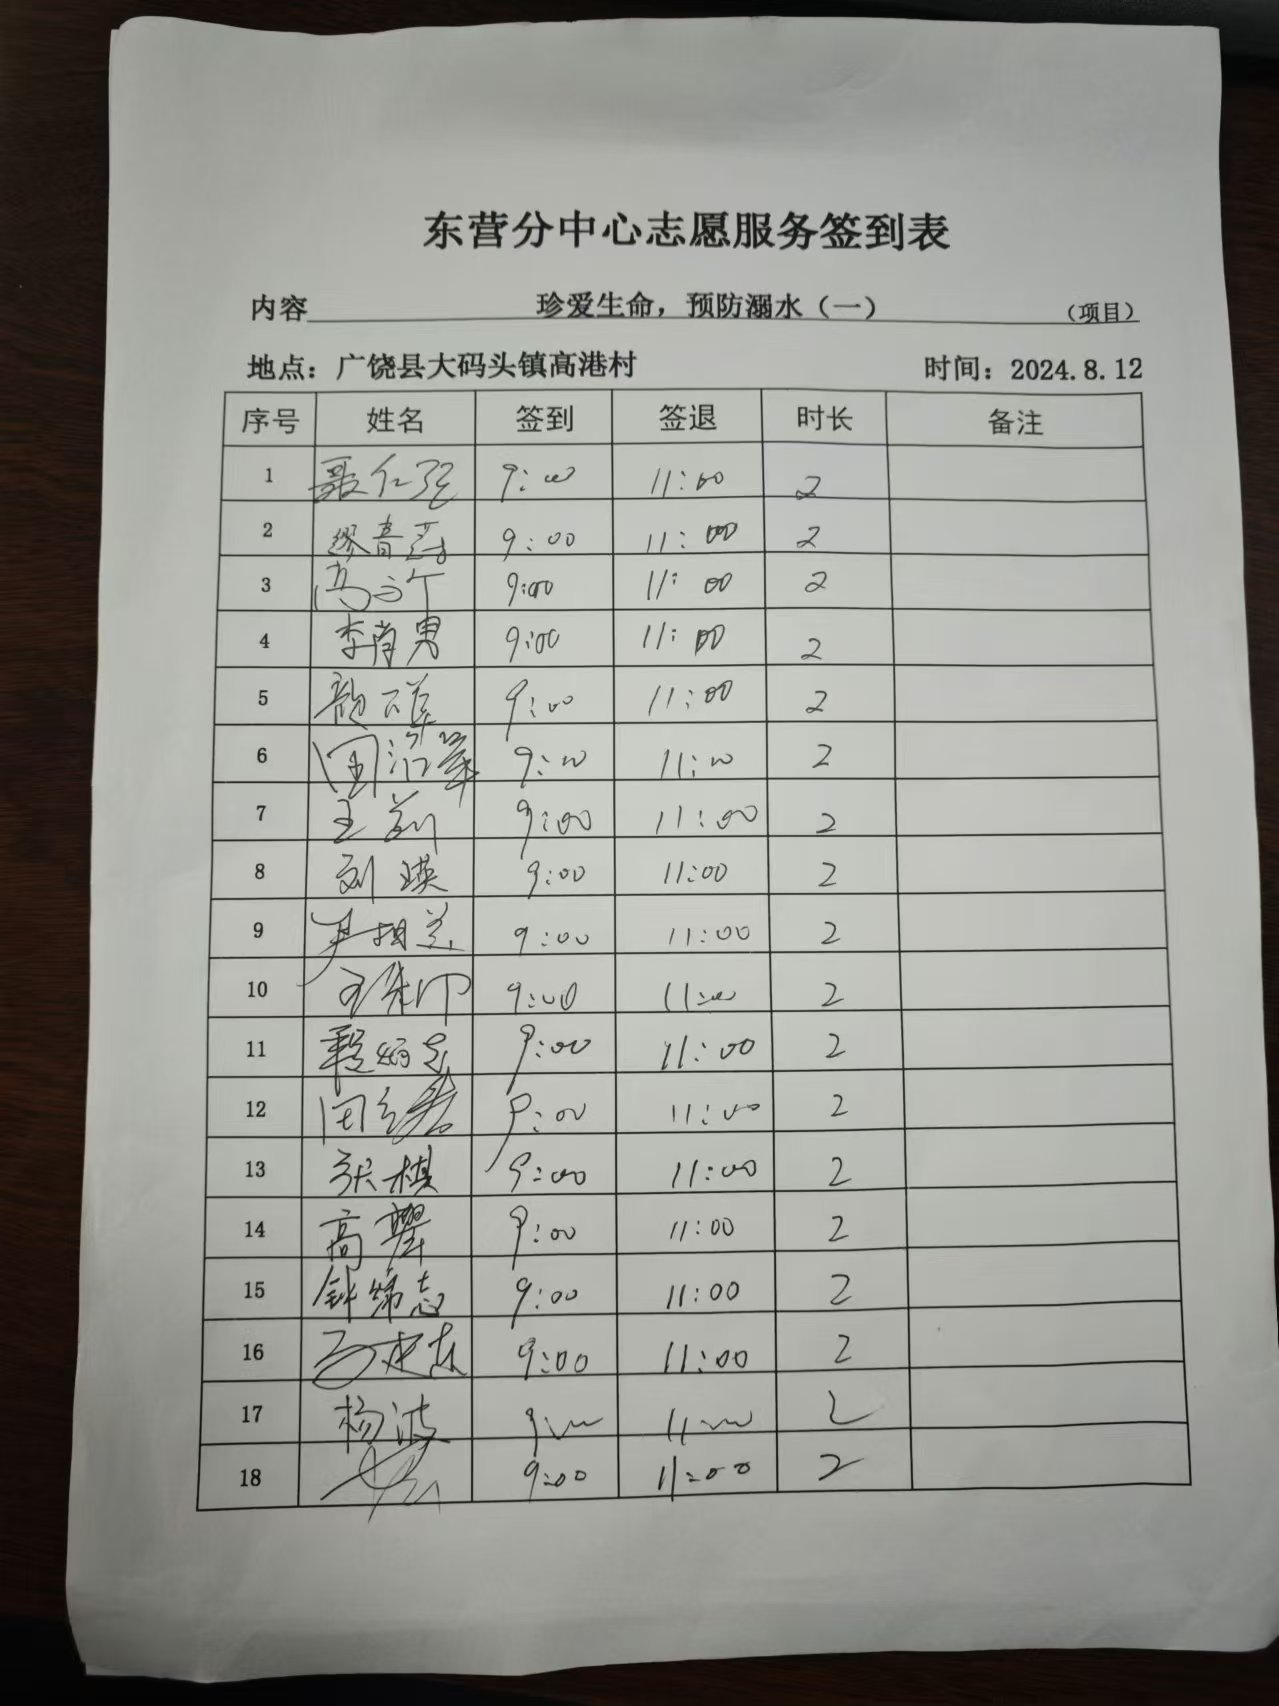 东营分中心志愿服务签到表
内容 珍爱生命，预防溺水（一） （项目）
地点：广饶县大码头镇高港村 时间：2024.8.12
序号 姓名 签到 签退 时长 备注
1 聂仁强 9:00 11:00 2
2 缪青 9:00 11:00 2
3 9:00 11:00 2
4 李尚男 9:00 11:00 2
5 9:00 11:00 2
6 9:00 11:00 2
7 王莉 9:00 11:00 2
8 刘瑛 9:00 11:00 2
9 尹相兰 9:00 11:00 2
10 9:00 11:00 2
11 程炳志 9:00 11:00 2
12 9:00 11:00 2
13 张棋 9:00 11:00 2
14 高翟 9:00 11:00 2
15 志 9:00 11:00 2
16 9:00 11:00 2
17 杨波 9:00 11:00 2
18 9:00 11:00 2